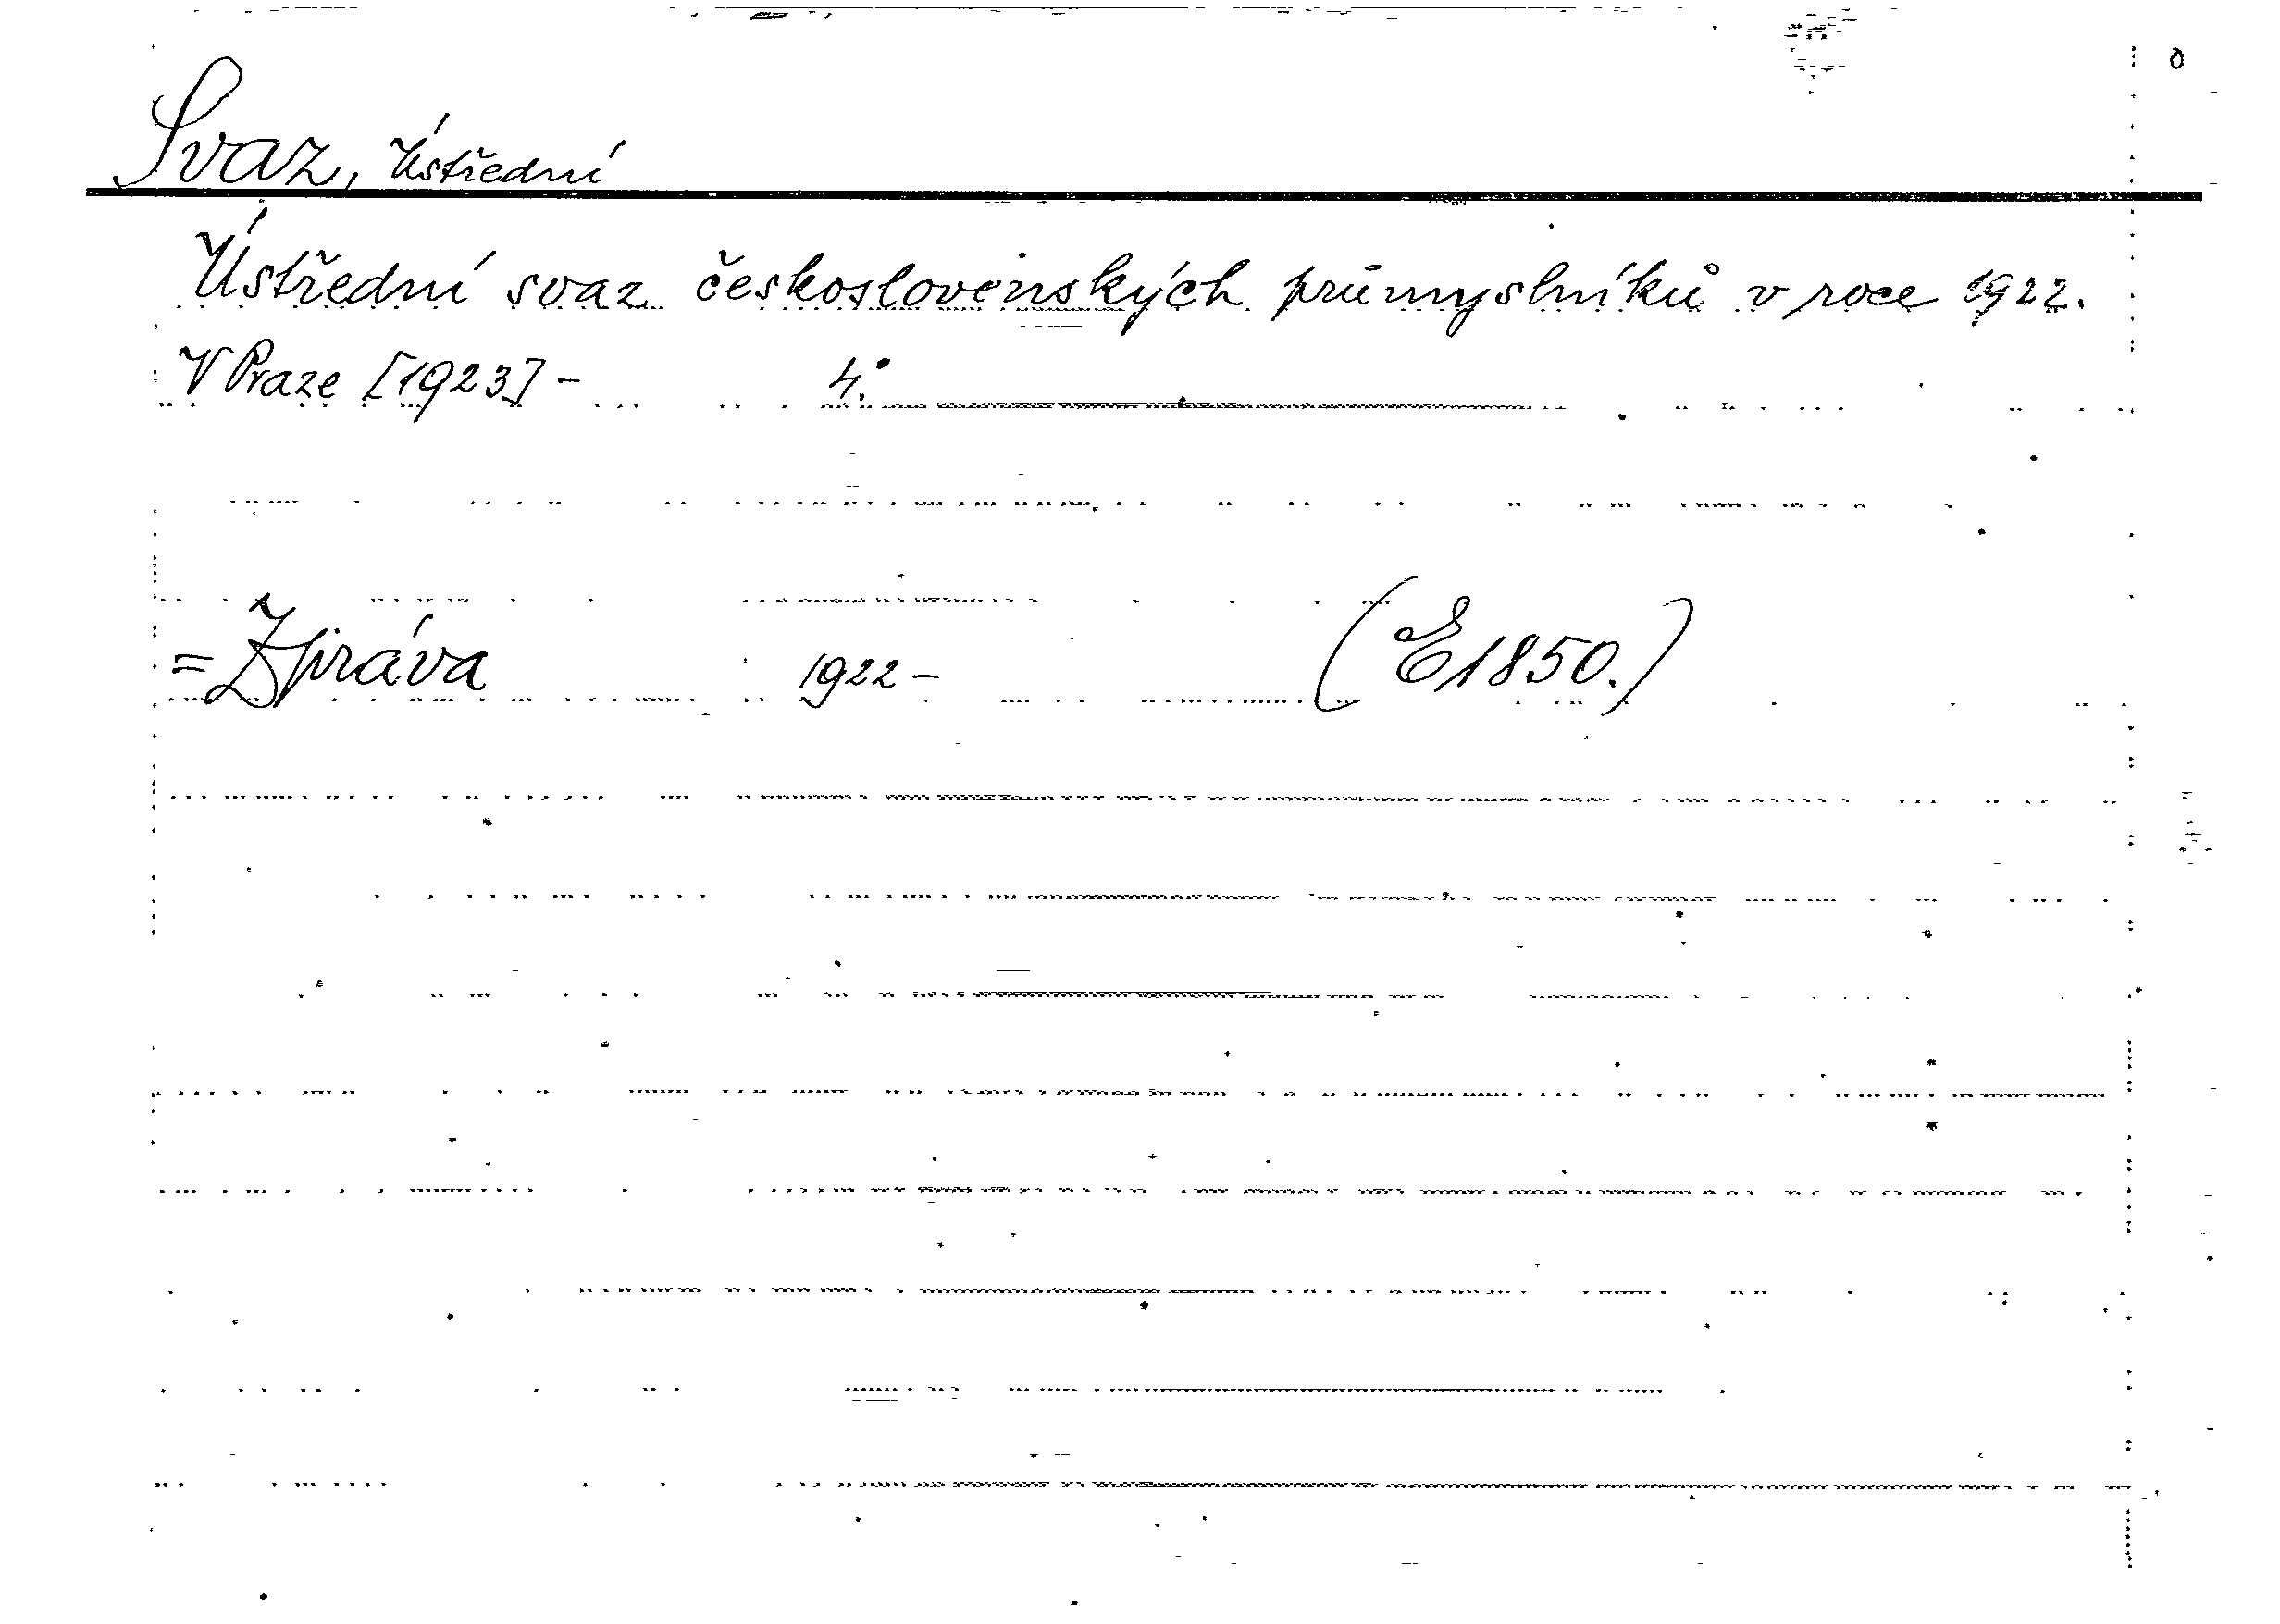 Svaz, Ústřední
Ústřední svaz československých průmyslníků v roce 1922.
V Praze [1923] - 4.°
= Zpráva 1922 - (E 1850.)